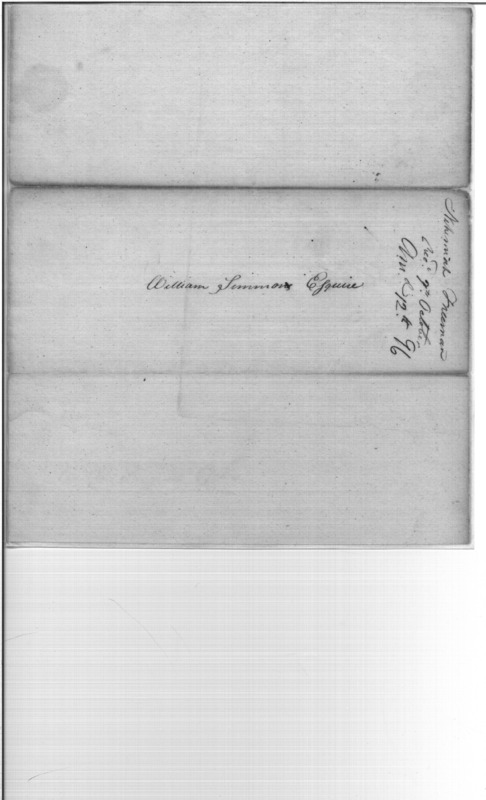 William Simmons Esquire
Nehemiah Freeman
Rec.d 9th October
Ans.d 12th 96